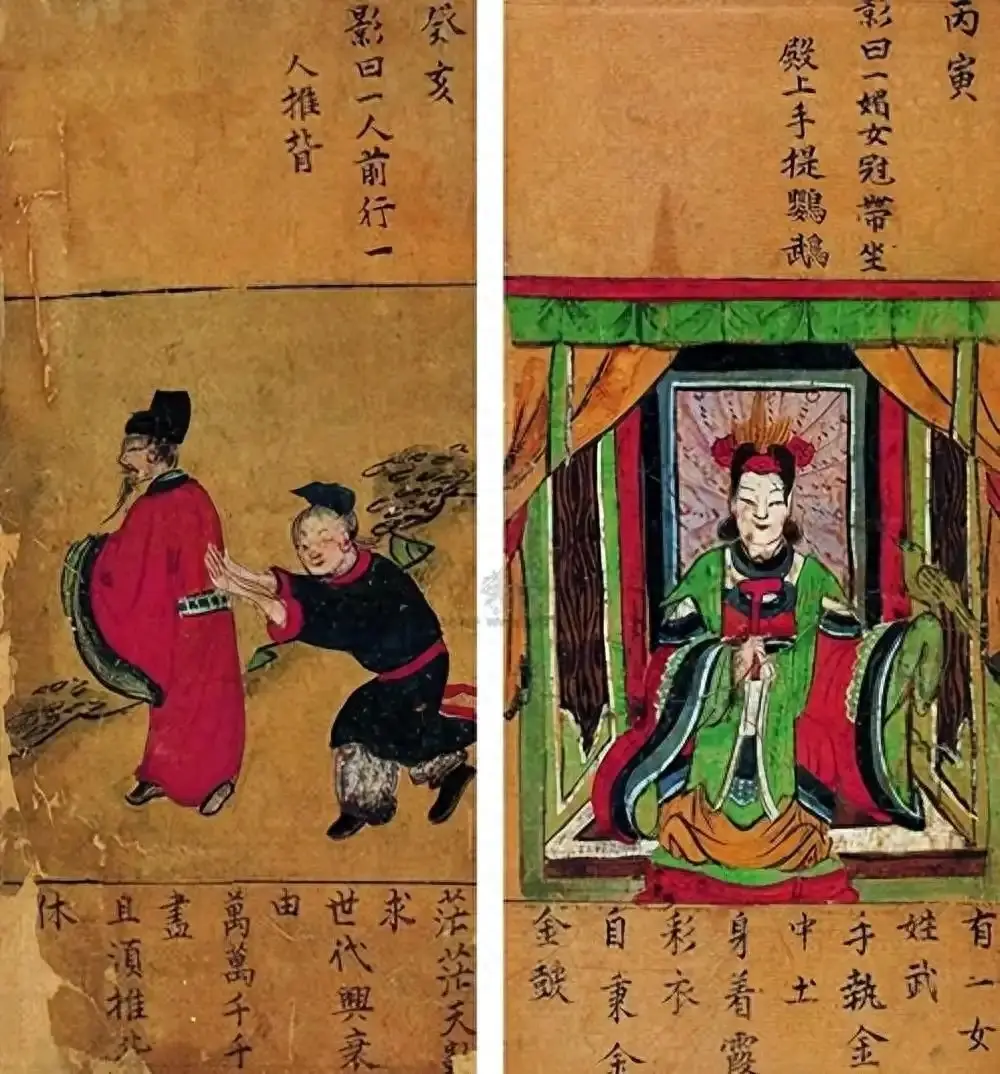 癸亥
影曰一人前行一
人推背
茫茫天
求
世代興衰
由
萬萬千千
盡
且須推
休
丙寅
影曰一媚女冠帶坐
殿上手提鸚鵡
有一女
姓武
手執金
中土
身着霞
彩衣
自秉金
金鼓